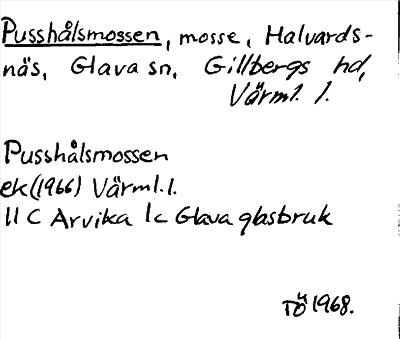 Pusshålsmossen, mosse, Halvards-
näs, Glava sn, Gillbergs hd,
Värml. l.
Pusshålsmossen
ek (1966) Värml. l.
11 C Arvika 1c Glava glasbruk
TÖ 1968.